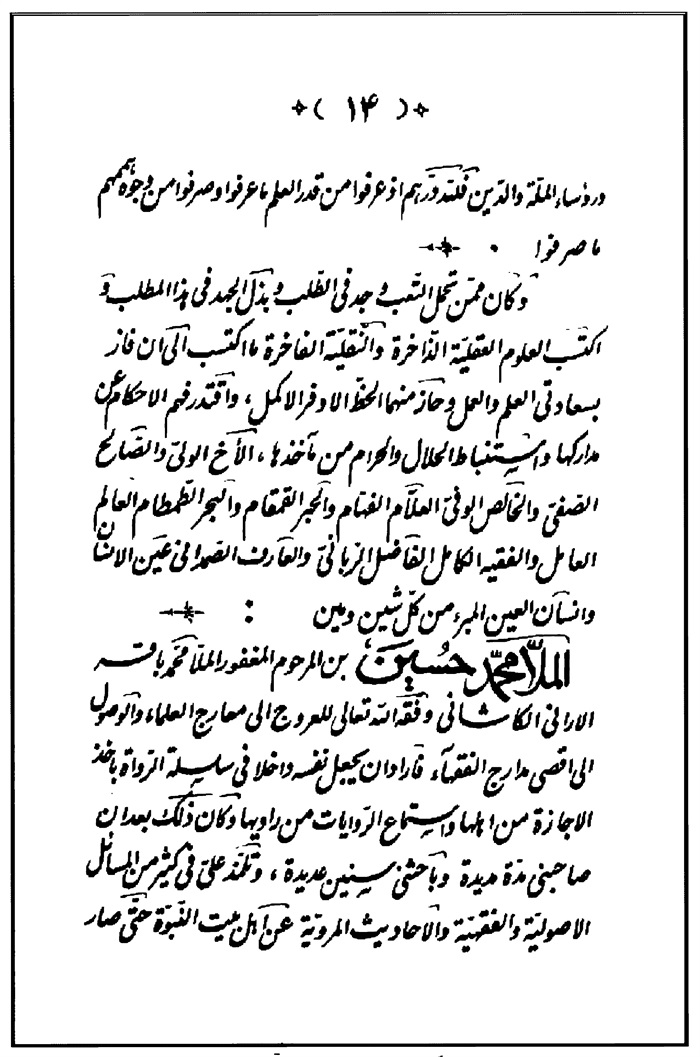 ( ۱۴ )
ورؤساء الملّة والدّين فللّه درّهم اذ عرفوا من قدر العلم ما عرفوا وصرفوا من وجوه هممهم
ما صرفوا
وكان ممّن تحمّل التّعب وجد فى الطّلب وبذل الجهد فى هذا المطلب و
اكتسب العلوم العقليّة الذّاخرة والنّقليّة الفاخرة ما اكتسب الى ان فاز
بسعادتى العلم والعمل وحاز منهما الحظّ الاوفر الاكمل، واقتدر فهم الاحكام عن
مداركها واستنباط الحلال والحرام من مآخذها، الأخ الولىّ والصّالح
الصّفىّ والخالص الوفىّ العلّام الفهّام والحبر القمقام والبحر الطّمطام العالم
العامل والفقيه الكامل الفاضل الرّبّانىّ والعارف الصّمدانى عين الانسان
وانسان العين المبرء من كلّ شين ومين :
الملّا محمّد حسين، بن المرحوم المغفور الملّا محمّد باقر
الارانى الكاشانى وفّقه اللّه تعالى للعروج الى معارج العلماء والوصول
الى اقصى مدارج الفقهآء فاراد ان يجعل نفسه داخلا فى سلسلة الرّواة باخذ
الاجازة من اهلها واستماع الرّوايات من راويها وكان ذلك بعد ان
صاحبنى مدّة مديدة وباحثنى سنين عديدة، وتلمّذ علىّ فى كثير من المسائل
الاصوليّة والفقهيّة والاحاديث المرويّة عن اهل بيت النّبوّة حتّى صار